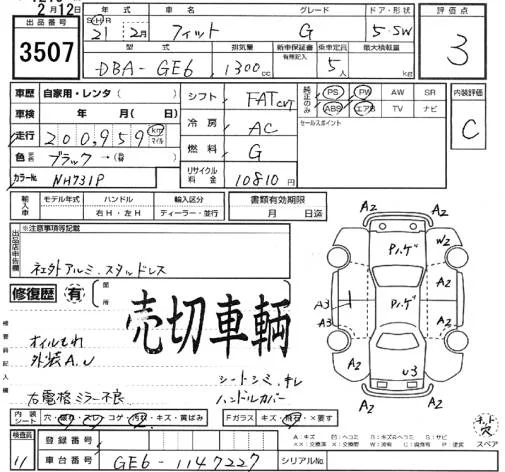 2月12日
出品番号
3507
年式 車名 グレード ドア・形状
S H R 21 2月 フィット G 5 SW
型式 排気量 新車保証書 乗車定員 最大積載量
有無記入
DBA-GE6 1300cc 5人 kg
評価点
3
車歴 自家用・レンタ( )
車検 年 月( 日)
走行 200,959 km マイル
色 ブラック→(替)
カラーNo. NH731P
シフト FAT CVT
冷房 AC
燃料 G
リサイクル料金 10810円
純正のみ PS PW AW SR
ABS エアB TV ナビ
セールスポイント
内装評価
C
輸入車 モデル年式 ハンドル 輸入区分
右H・左H ディーラー・並行
書類有効期限
月 日迄
出品店申告欄
※注意事項等記載
社外アルミ、スタッドレス
修復歴 有 箇所
売切車輌
検査員記入欄
オイルもれ
外装A、U
右電格ミラー不良
シートシミ、キレ
ハンドルカバー
A2 A2
A2 W2
ハゲ
A2
A3 ハゲ
A3 A2
A2 U3
A2 A2
内装シート 穴・破れ・スレ・コゲ・汚れ・キズ・黄ばみ
Fガラス キズ・飛石・×要す
A:キズ 凹:ヘコミ B:キズ&ヘコミ S:サビ
××:交換済 ×:交換要 W:波有 C:腐食有 P:塗装
スペア
検査員
11
登録番号
車台番号 GE6-1147227
シリアルNo.